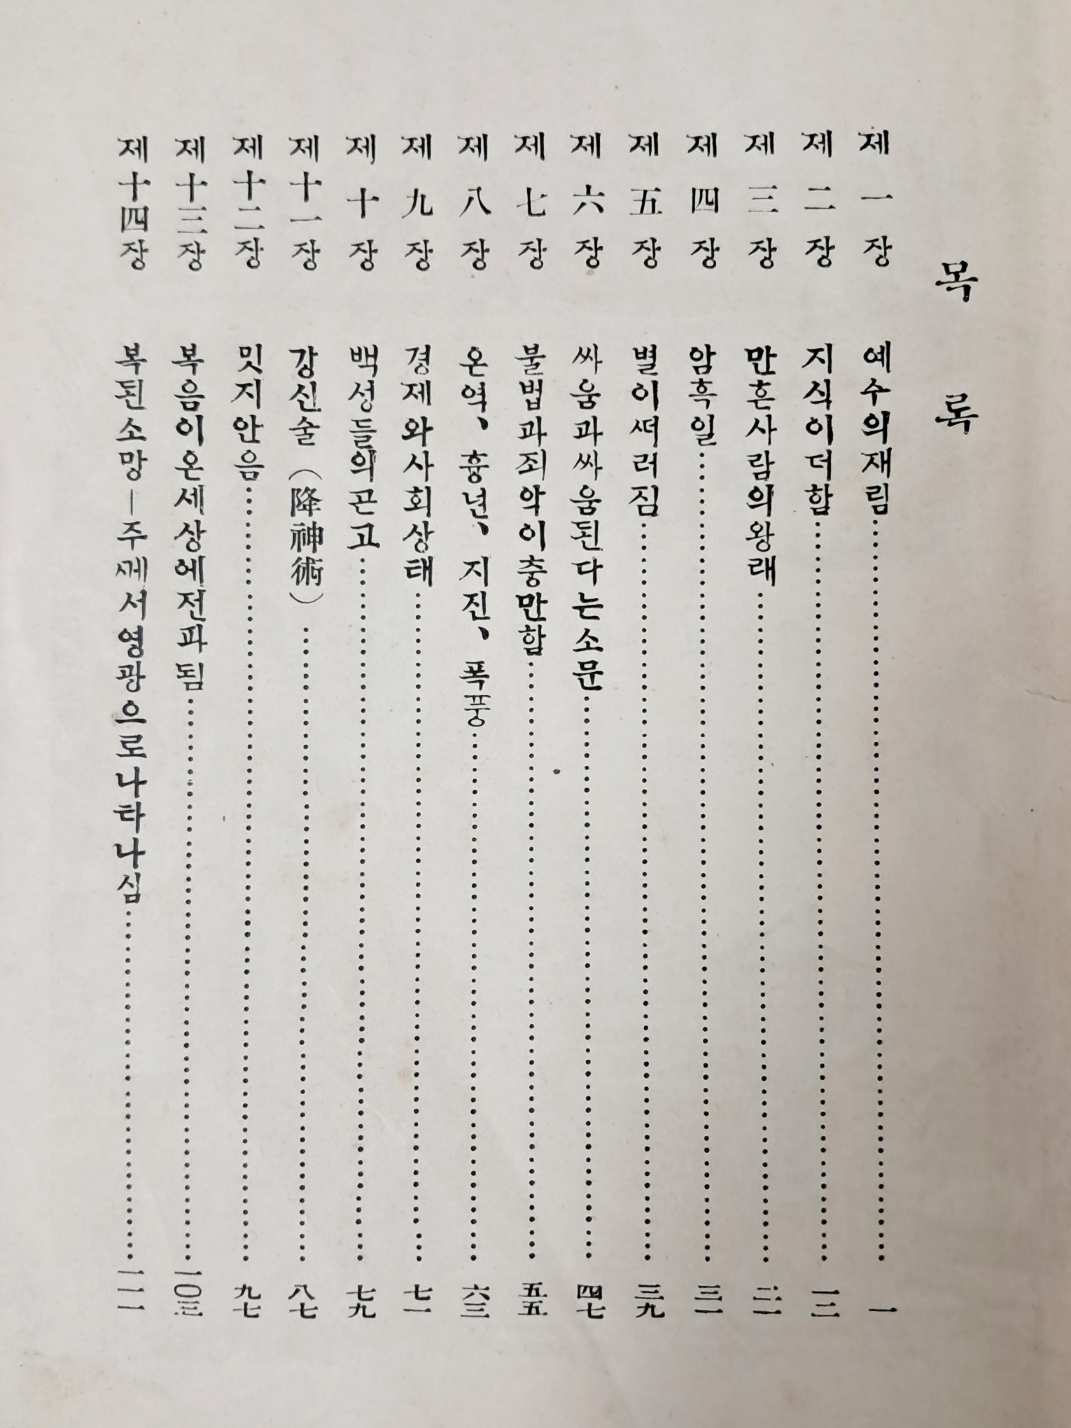 목록
제一장 예수의재림 一
제二장 지식이더함 一二
제三장 만흔사람의왕래 二一
제四장 암흑일 三一
제五장 별이ᄯᅥ러짐 三九
제六장 싸움과싸움된다는소문 四七
제七장 불법과죄악이충만함 五五
제八장 온역、흉년、지진、폭풍 六三
제九장 경제와사회상태 七一
제十장 백성들의곤고 七九
제十一장 강신술(降神術) 八七
제十二장 밋지안음 九七
제十三장 복음이온세상에전파됨 一〇三
제十四장 복된소망—주ᄭᅦ서영광으로나타나심 一一一